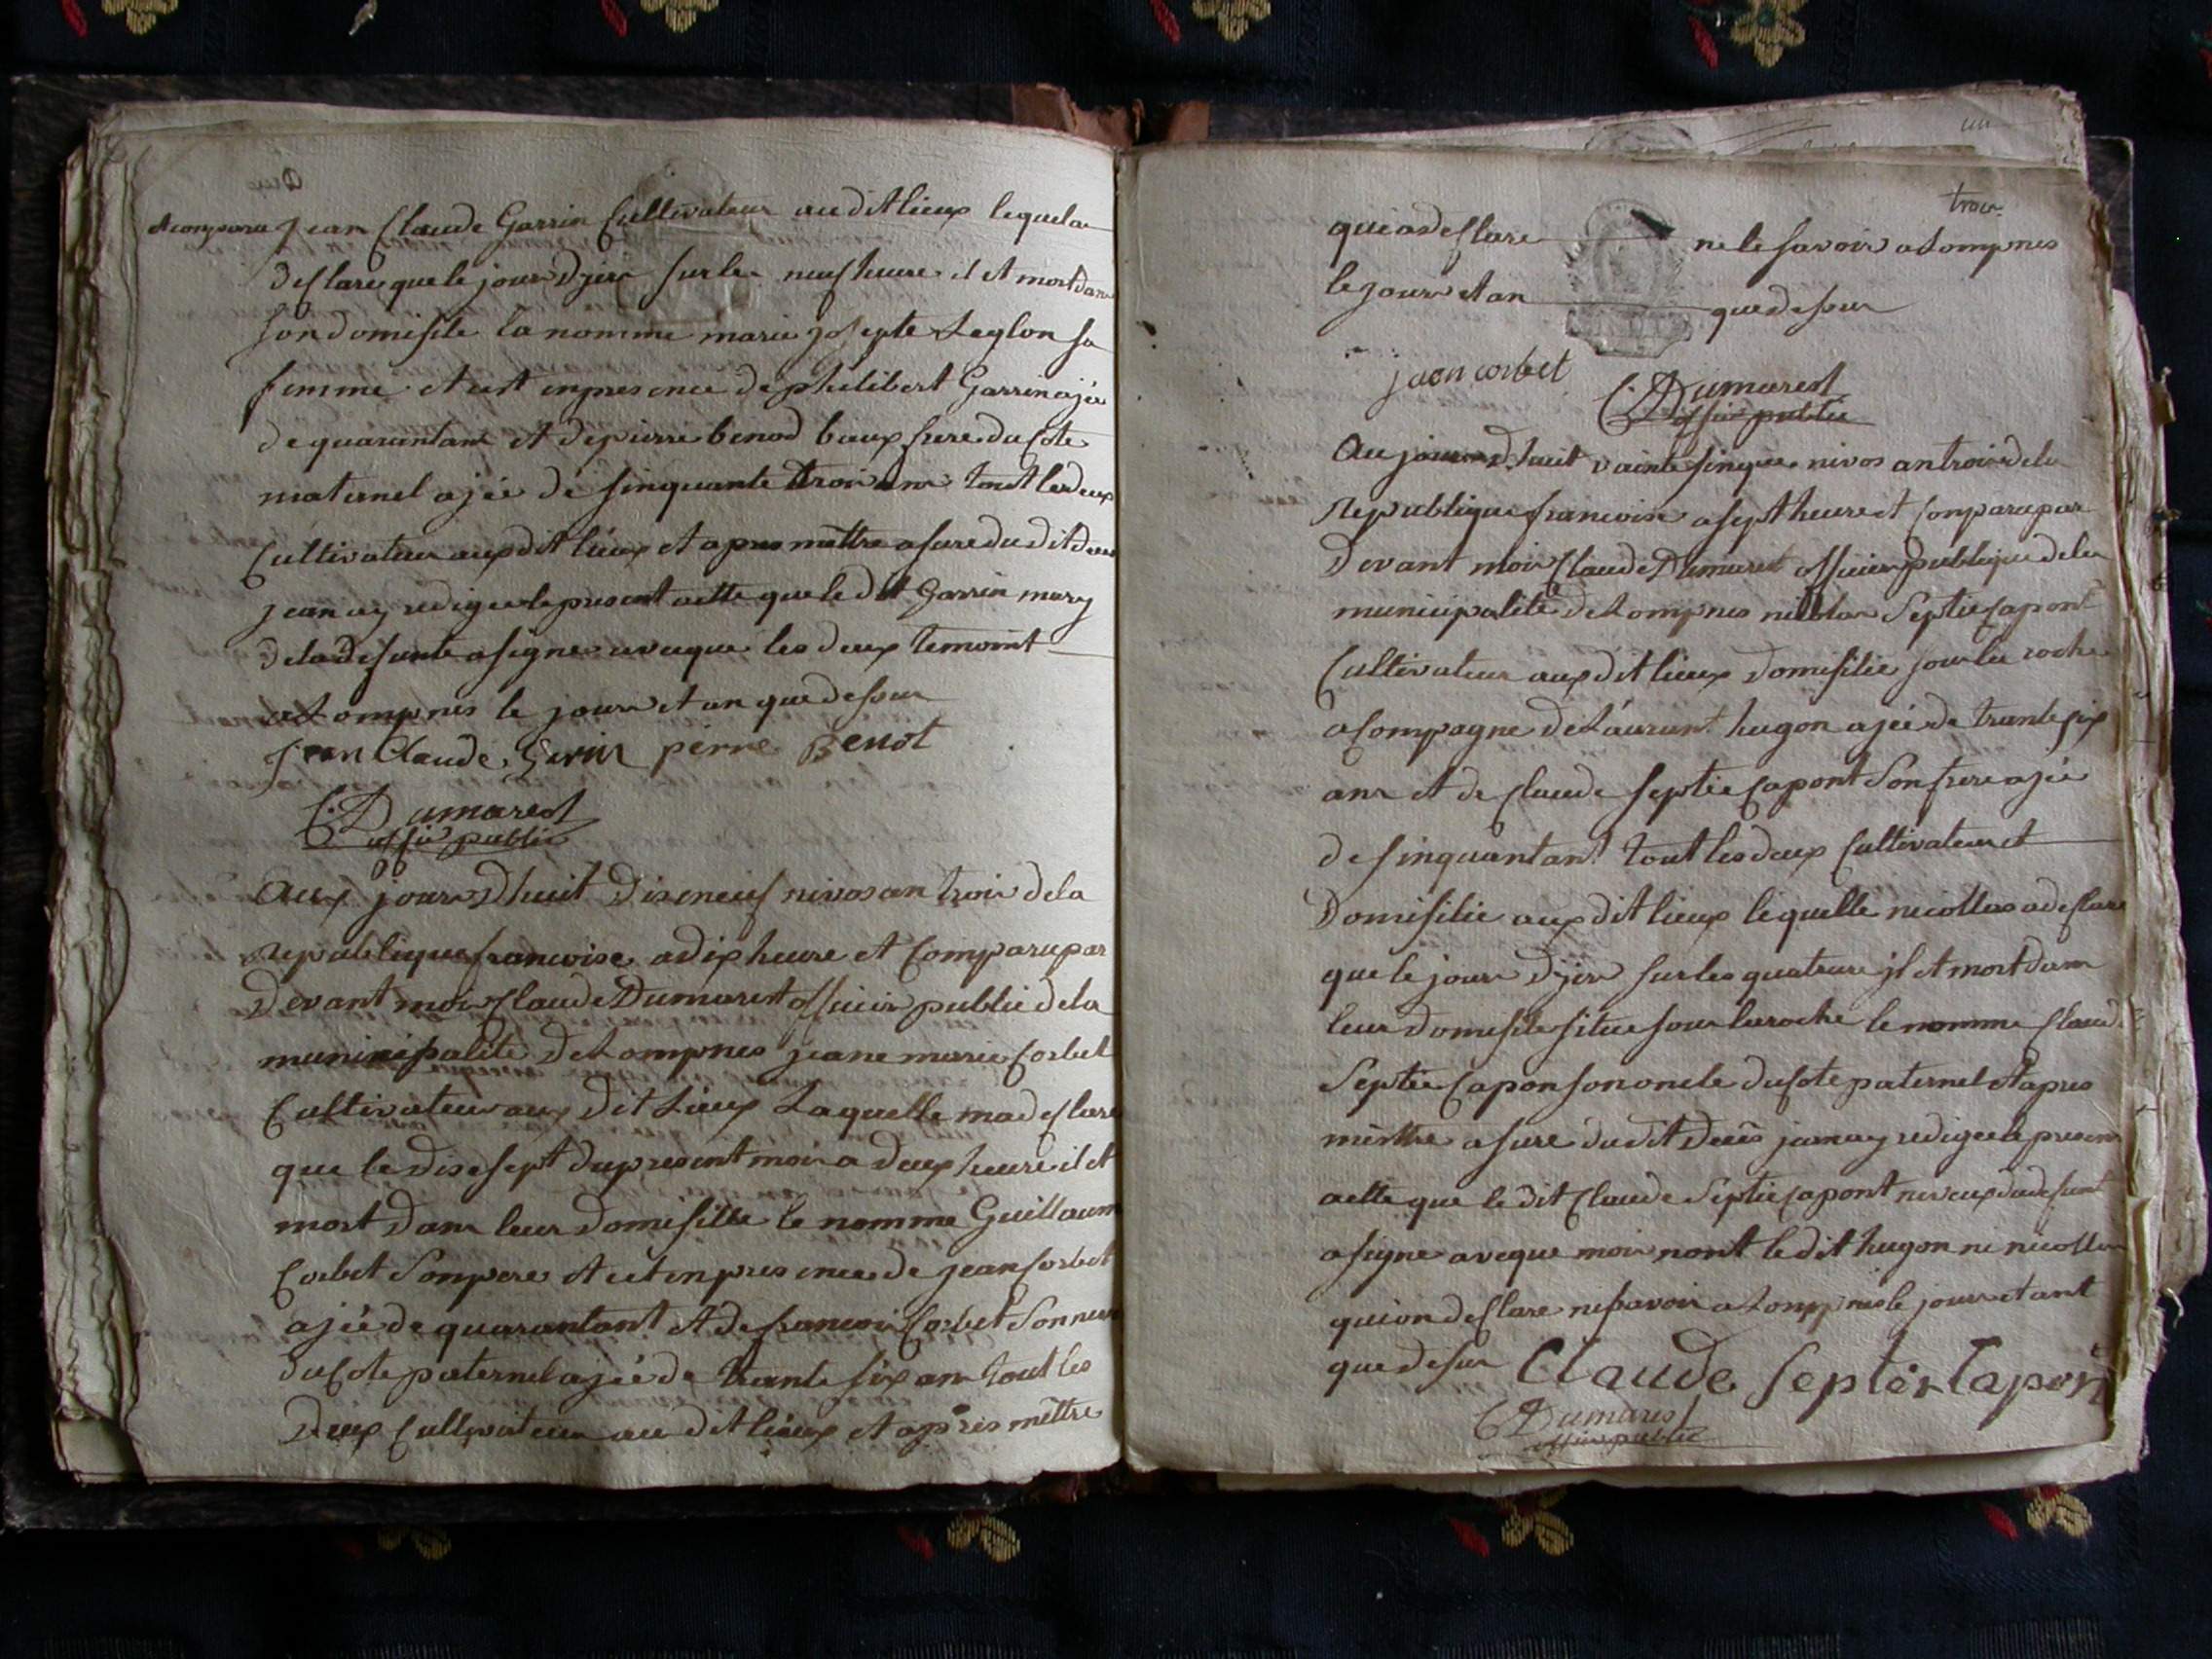 et conparu jean Claude Garrin Cultivateur au dit lieux lequel a
desclare que le jour dyier sur les neuf heure il et mort dans
son domisile la nomme marie josepte Leglon sa
femme et cest enpresence de philibert Garrin ajée
de quarantans et de pierre benod baux frere du cote
maternel ajée de sinquante troir ans tout les deux
Cultivateur aux dit lieux et apres mettre asure du dit deces
jean ay redigee le present actte que le dit Garrin mary
de la defunte a signe aveque les deux temoint
a Lompnes le jour et an que dessur
jean Claude Gerrin pierre Benot
C. Dumarest
offier public
Aux jourdhuit diseneuf nivos an troir de la
republique francoise a dix heure et Comparu par
devant moir Claude Dumarest officier public de la
municipalite de Lompnes jeane marie Corbet
Cultivateur aux dit Lieux Laquelle ma desclare
que le disesept du present moir a deux heure il et
mort dans leur domisille le nomme Guillaum
Corbet son pere et cet enpresence de jean Corbet
ajée de quarantant et de francoir Corbet son neveu
du Cote paternel ajée de trante six ans tout les
deux Cultivateur au dit lieux et apres mettre
troir
qui a desclare ne le savoir a Lompnes
le jour et an que dessur
jean corbet C. Dumarest
offier public
Au jourdhuit vainte sinque nivos an troir de la
Republique francoise a sept heure et Conparu par
Devant moir Claude Dumarest officier publique de la
municipalite de Lompnes nicollas Septier Capont
Cultivateur aux dit lieux domisilie sour la roche
a Compagne de Laurant hugon ajée de trante six
ans et de Claude Septier Capont son frere ajée
de sinquantant tout les deux Cultivateur et
Domisilie aux dit lieux lequelle nicollas a desclare
que le jour dyier sur les quatreure jl et mort dans
leur domisile situe sour la roche le nomme Claude
Septier Capon son oncle du cote paternel et apres
mettre a sure du dit deces jean ay redigee le present
actte que le dit Claude Septier Capont neveux du defunt
a signe aveque moir nont le dit hugon ni nicollas
qui on desclare ne savoir a Lompnes le jour et ant
que desur Claude Septier Capont
C Dumarest
offier public